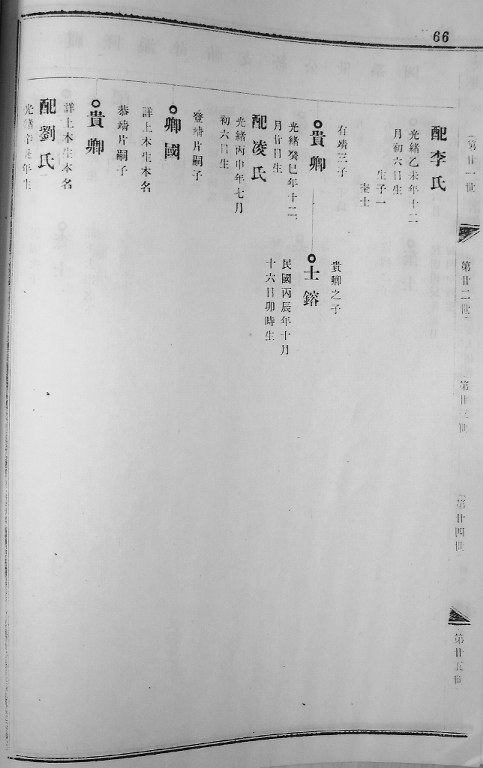 66
第廿一世
第廿二世
第廿三世
第廿四世
第廿五世
配李氏
光緒乙未年十二
月初六日生
生子一
士
有靖三子
貴卿
光緒癸巳年十二
月廿日生
配凌氏
光緒丙申年七月
初六日生
貴卿之子
士鎔
民國丙辰年十月
十六日卯時生
登靖片嗣子
卿國
詳上本生本名
恭靖片嗣子
貴卿
詳上本生本名
配劉氏
光緒年生